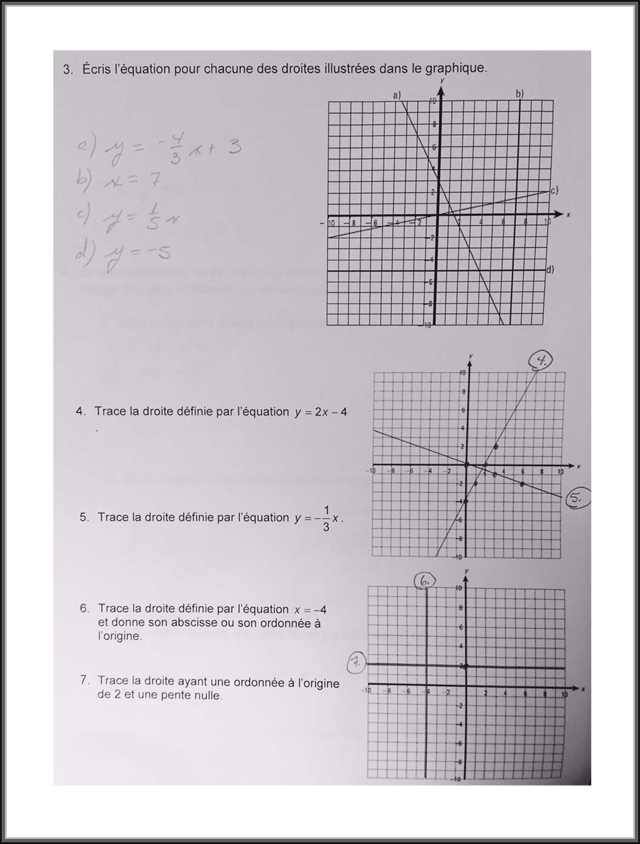 3. Écris l'équation pour chacune des droites illustrées dans le graphique.
a) y = -4/3 x + 3
b) x = 7
c) y = 1/5 x
d) y = -5
y
a)
b)
c)
d)
x
-10 -8 -6 -4 -2 2 4 6 8 10
10
8
6
4
2
-2
-4
-6
-8
-10
4. Trace la droite définie par l'équation y = 2x – 4
5. Trace la droite définie par l'équation y = -1/3 x.
y
4.
5.
x
-10 -8 -6 -4 -2 2 4 6 8 10
10
8
6
4
2
-2
-4
-6
-8
-10
6. Trace la droite définie par l'équation x = –4
et donne son abscisse ou son ordonnée à
l'origine.
7. Trace la droite ayant une ordonnée à l'origine
de 2 et une pente nulle.
y
6.
7.
x
-10 -8 -6 -4 -2 2 4 6 8 10
10
8
6
4
2
-2
-4
-6
-8
-10